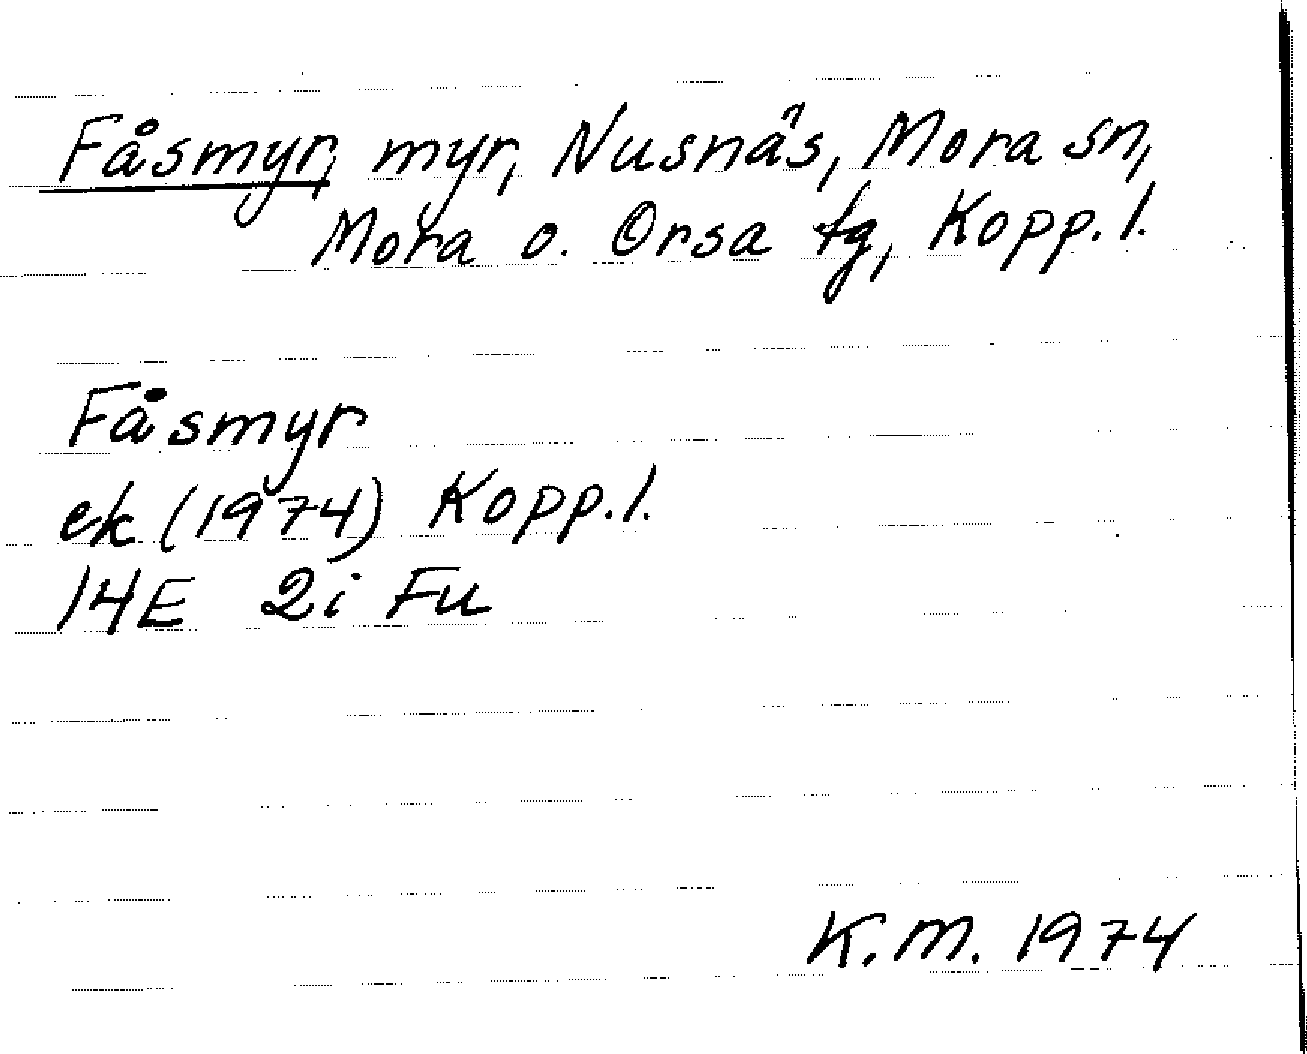 Fåsmyr, myr, Nusnäs, Mora sn,
Mora o. Orsa tg, Kopp. l.
Fåsmyr
ek (1974) Kopp. l.
14E 2i Fu
K. M. 1974